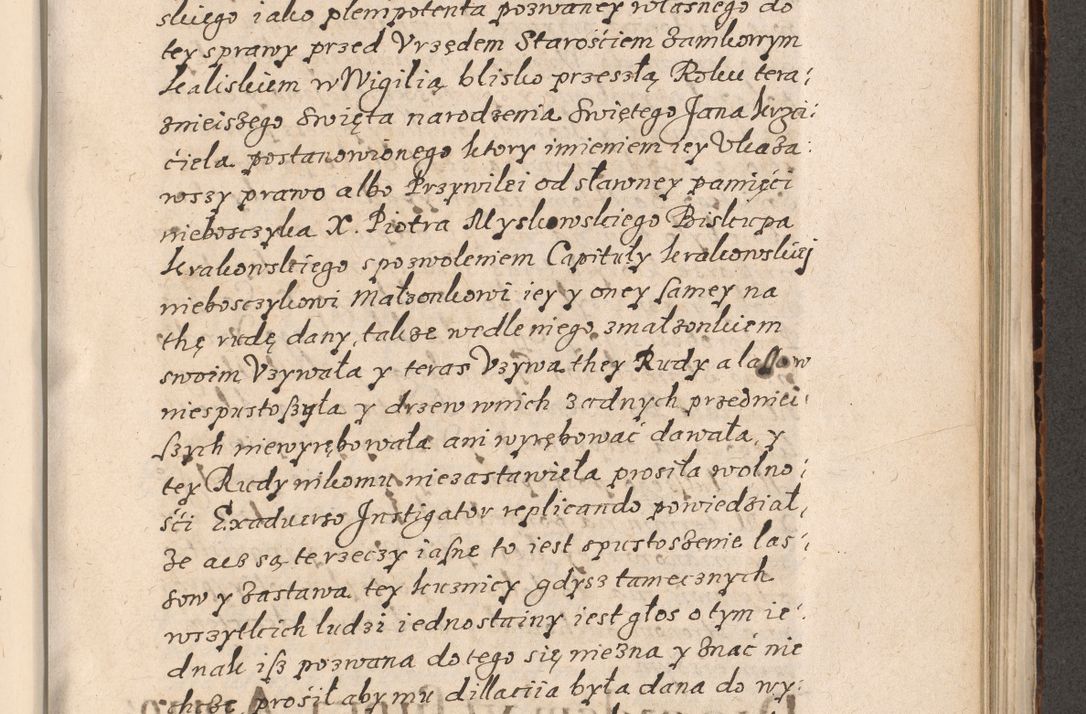 skiego iako plenipotenta pozwaney własnego do
tey sprawy przed Vrzędem Starościem Zamkowym
kaliskiem w Wigilią blisko przeszłą Roku tera¿
znieiszego Swięta narodzenia Swiętego Jana krzci¿
ciela postanowionego ktory imieniem iey Vkaza.
wszy prawo albo Przywilei od sławney pamięci
nieboszczyka X. Piotra Myskowskiego Biskupa
krakowskiego s pozwoleniem Capituły krakowskiej
nieboszczykowi Małzonkowi iey y oney samey na
thę rudę dany, takze wedle niego z małzonkiem
swoim Vzywała y teras Vzywa they Rudy a lassow
niespustoszyła y drzew wnich zadnych przedniei¿
szych niewyrębowała ani wyrębować dawała, y
tey Rudy nikomu niezastawieła prosiła wolno¿
ści Exaduerso Instigator replicando powiedział,
ze acz są te rzeczy iasne to iest spustoszenie las¿
sow y Zastawa tey kuznicy gdysz tamecznych
wszytkich ludzi iednostainy iest głos o tym ie¿
dnak isz pozwana do tego się niezna y znać nie
chcze prosił aby mu dillaciia była dana do wy¿